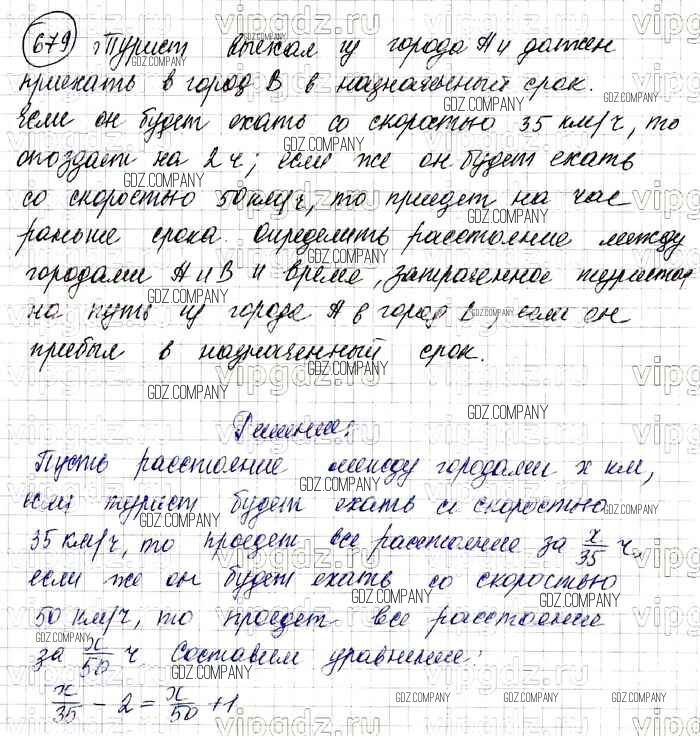 679 Турист выехал из города А и должен
приехать в город В в назначенный срок.
Если он будет ехать со скоростью 35 км/ч, то
опоздает на 2 ч; если же он будет ехать
со скоростью 50 км/ч, то приедет на час
раньше срока. Определить расстояние между
городами А и В и время, затраченное туристом
на путь из города А в город В, если он
прибыл в назначенный срок.
Решение:
Пусть расстояние между городами x км,
если турист будет ехать со скоростью
35 км/ч, то проедет все расстояние за x/35 ч,
если же он будет ехать со скоростью
50 км/ч, то проедет все расстояние
за x/50 ч Составим уравнение:
x/35 − 2 = x/50 + 1
vipgdz.ru
GDZ.COMPANY